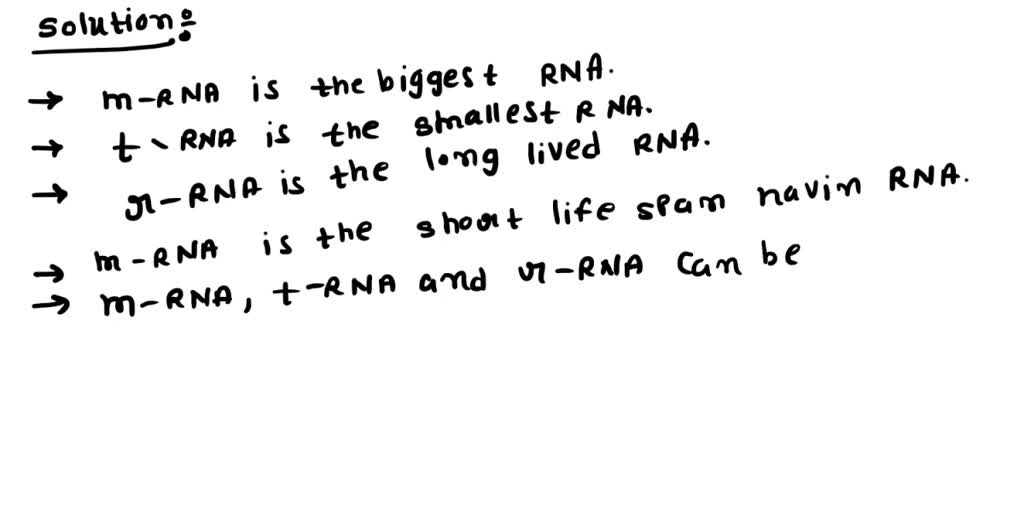 Solution:
→ m-RNA is the biggest RNA.
→ t-RNA is the smallest RNA.
→ r-RNA is the long lived RNA.
→ m-RNA is the short life span navin RNA.
→ m-RNA, t-RNA and r-RNA can be